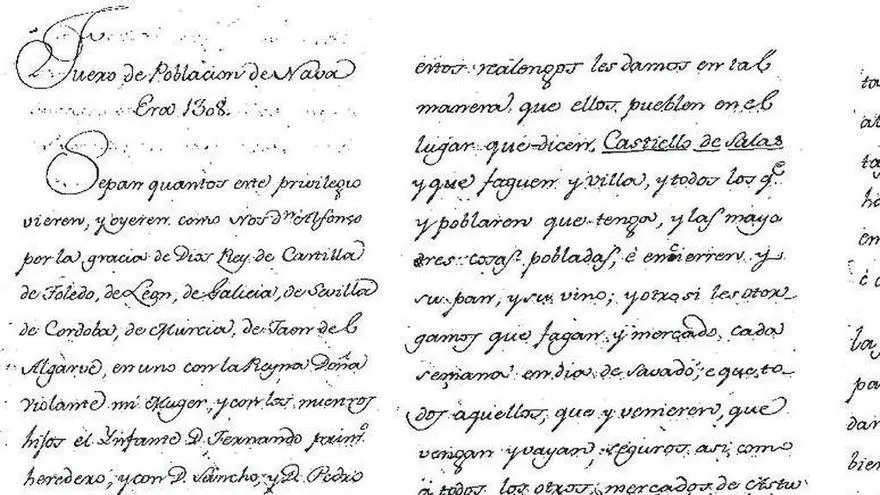 Fuero de Poblacion de Nava
Era 1308.
Sepan quantos este privilegio
vieren, y oyeren como Nos dⁿ Alfonso
por la gracia de Dios Rey de Castilla
de Toledo, de Leon, de Galicia, de Sevilla
de Cordoba, de Murcia, de Jaen del
Algarve, en uno con la Reyna Doña
Violante mi Muger, y con los nuestros
hijos el Infante D. Fernando prim.º
heredero, y con D. Sancho, y D. Pedro
estos realengos les damos en tal
manera que ellos pueblen en el
lugar que dicen, Castiello de Salas
y que faguen y villa, y todos los q.e
y poblaren que tenga, y las mayo
res cosas pobladas, é encierren y
su pan, y su vino; y otro si les otor
gamos que fagan y mercado, cada
semana en dia de Savado, e que to-
dos aquellos, que y venieren, que
vengan y vayan, seguros asi como
á todos los otros, mercados de
ta
al
ta
ha
en
é
la
pa
dar
bien